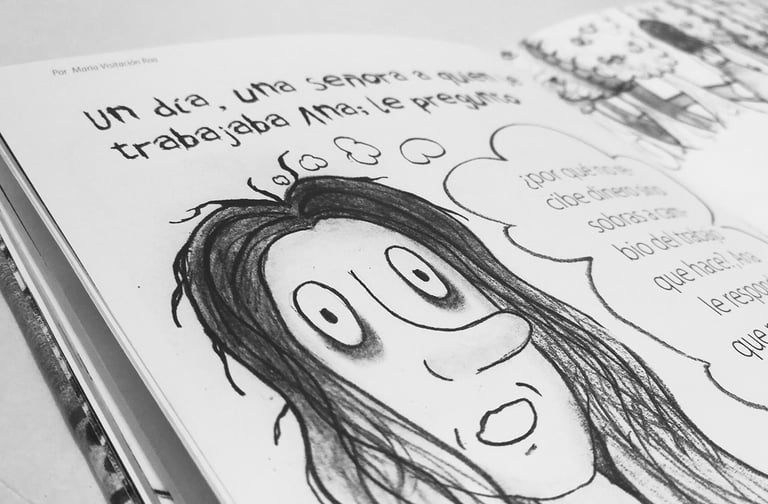 Por María Visitación Roa
un día, una señora a quien le
trabajaba Ana; le preguntó
¿por qué no re-
cibe dinero sino
sobras a cam-
bio del trabajo
que hace!, Ana
le respond
que